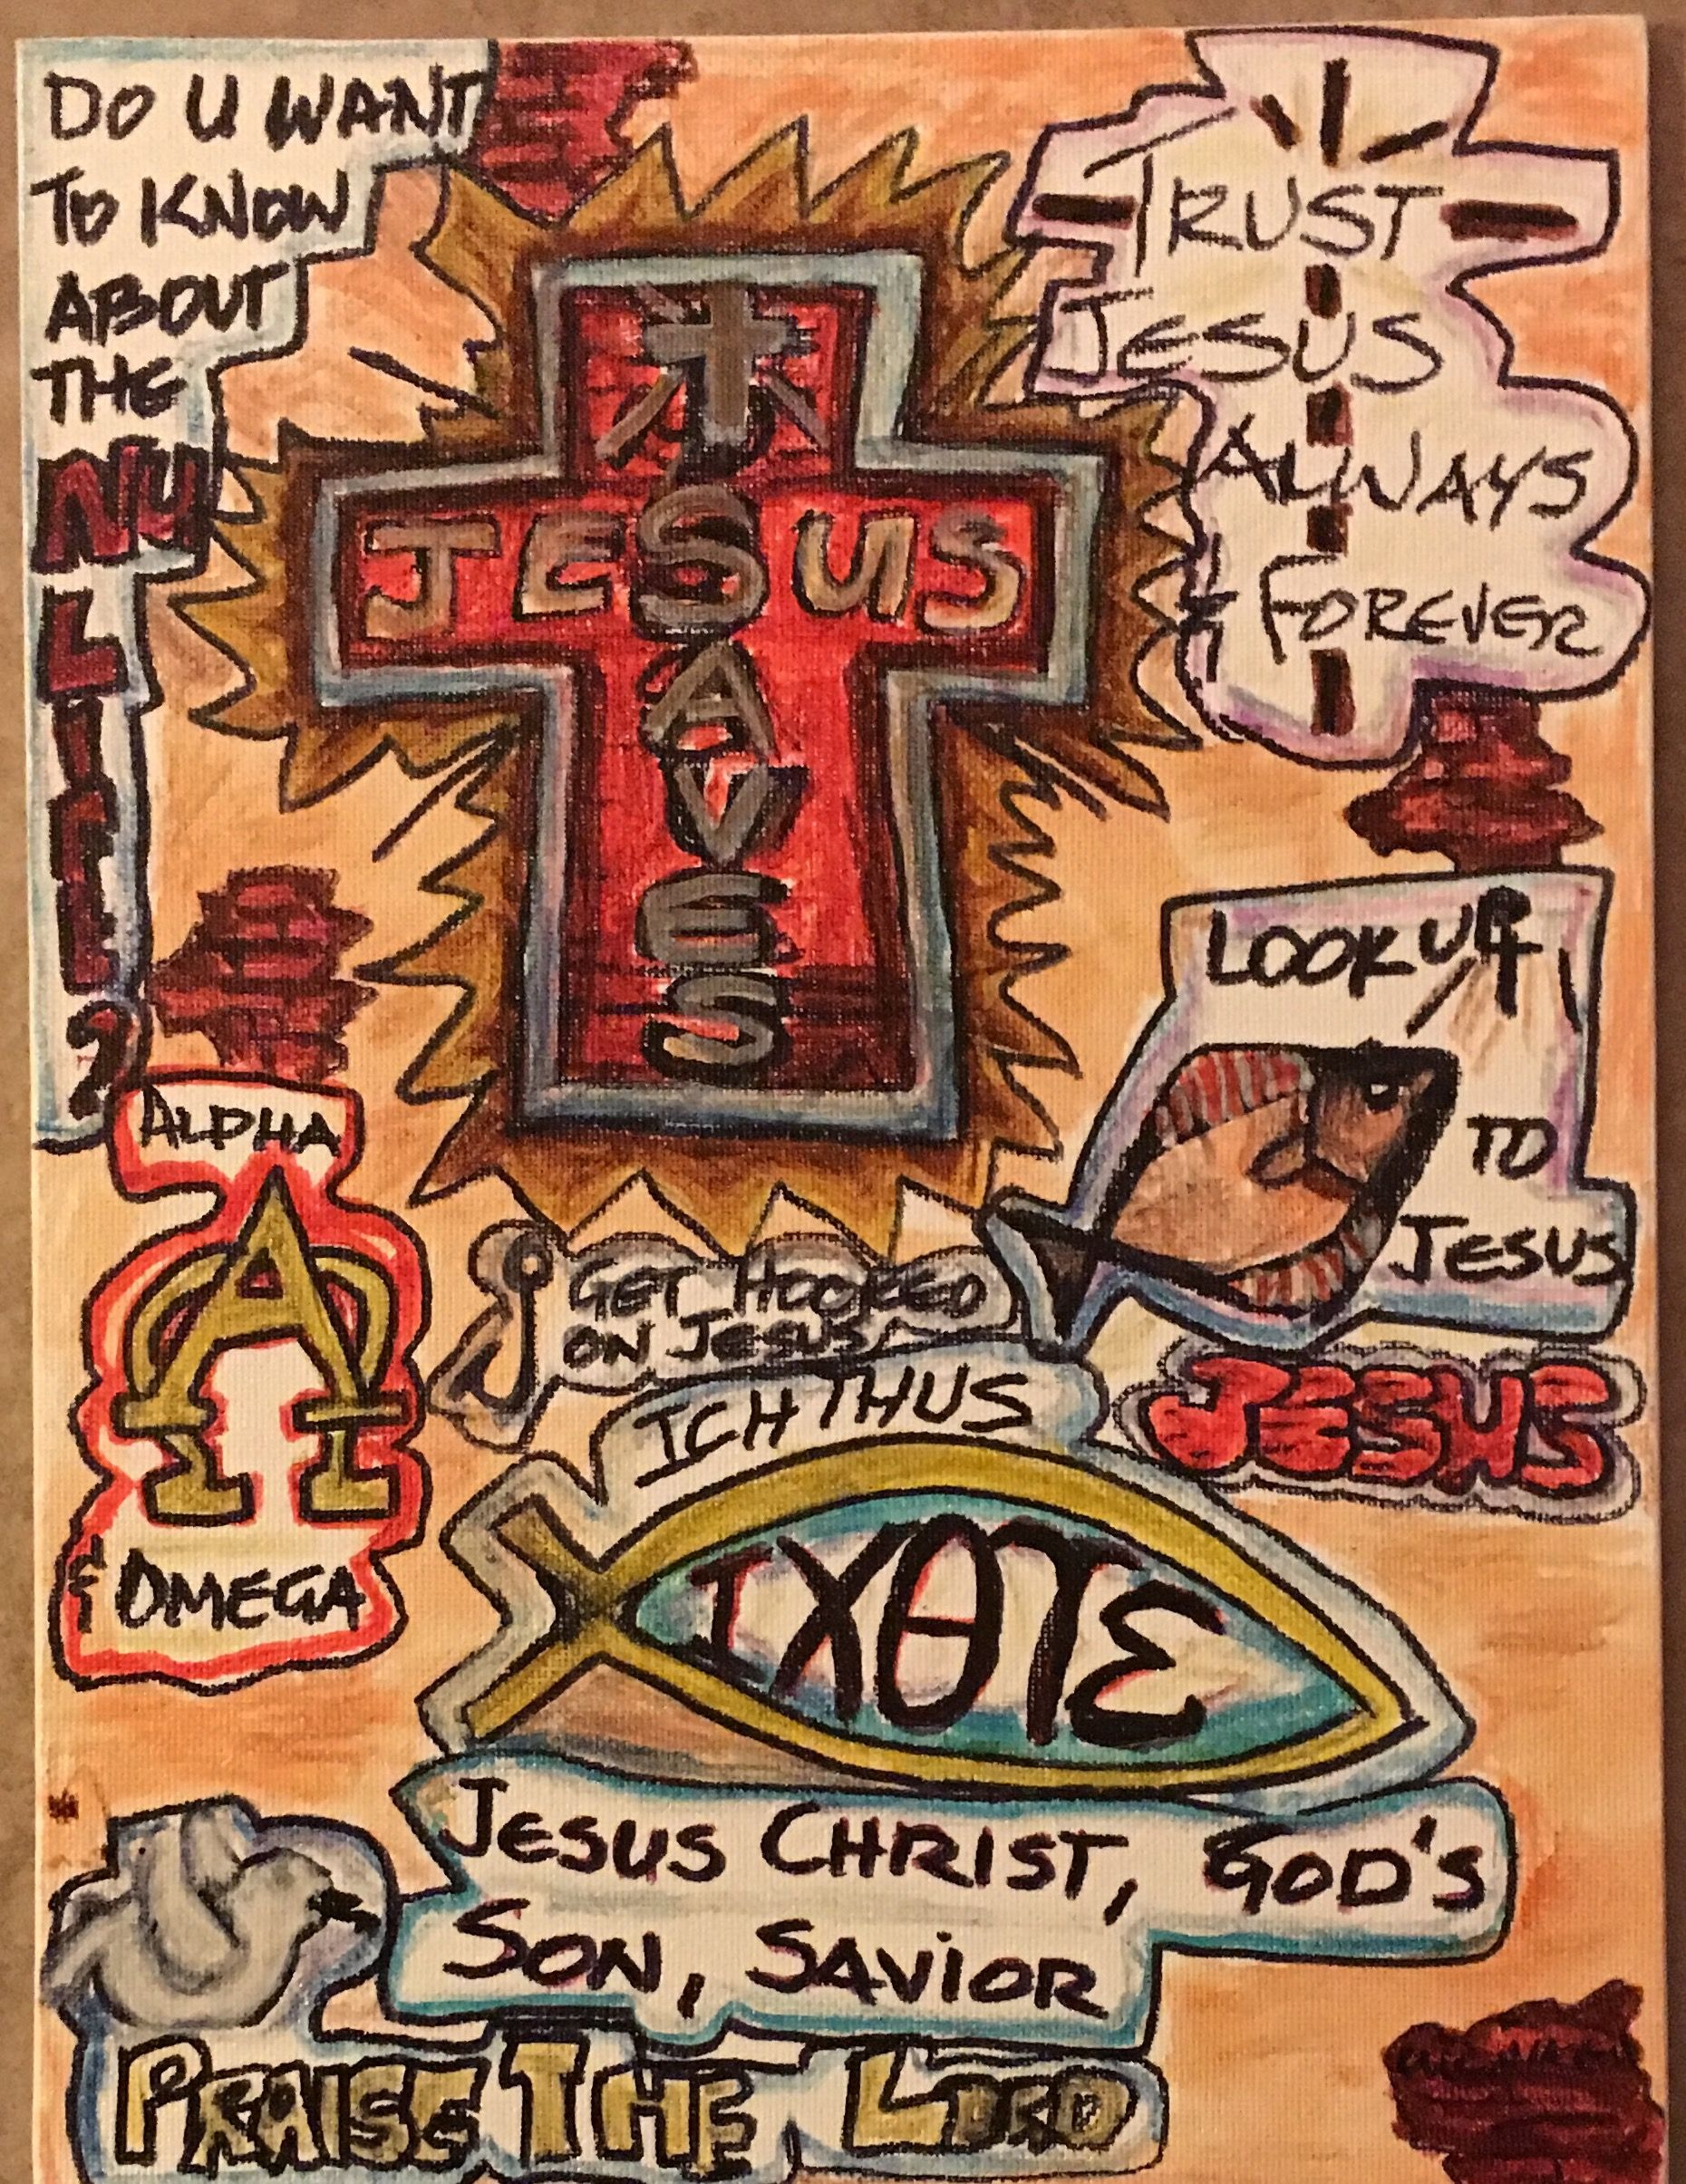 DO U WANT
TO KNOW
ABOUT
THE
NU
LIFE
?
TRUST
JESUS
ALWAYS
& FOREVER
JESUS
SAVES
LOOK UP
TO
JESUS
ALPHA
ΑΩ
& OMEGA
GET HOOKED
ON JESUS
JESUS
ICHTHUS
ΙΧΘΤΕ
JESUS CHRIST, GOD'S
SON, SAVIOR
PRAISE THE LORD